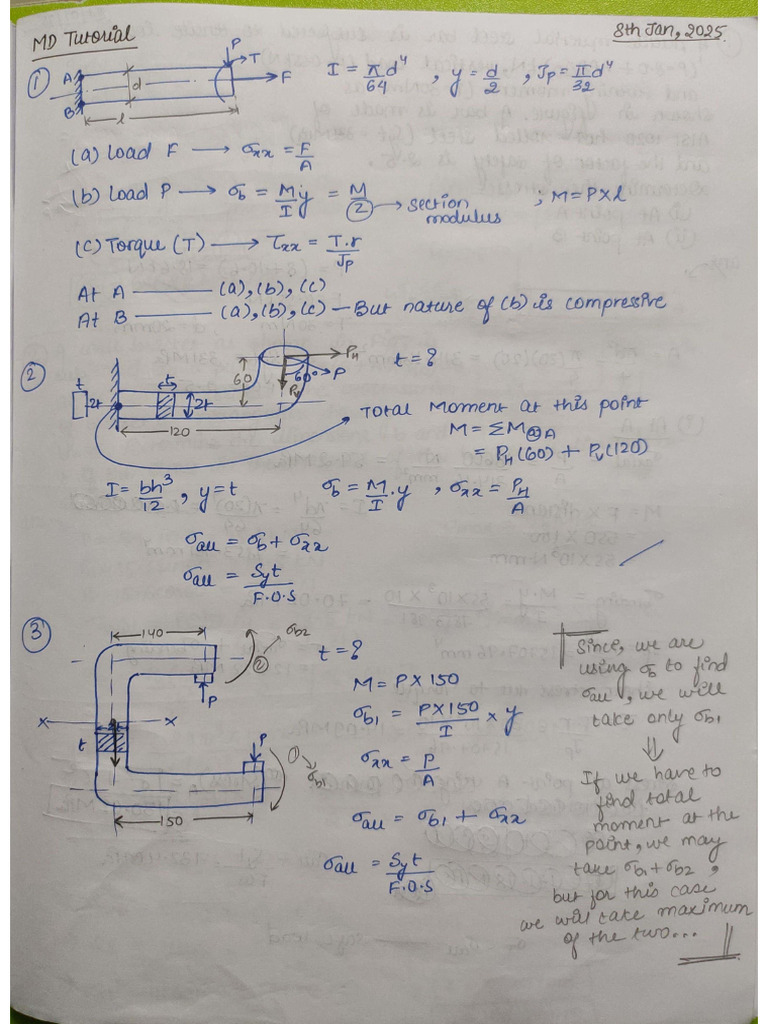 MD Tutorial
8th Jan, 2025.
①
A
B
d
l
P
T
F
I = πd⁴/64 , y = d/2 , Jp = πd⁴/32
(a) Load F → σxx = F/A
(b) Load P → σb = M/I y = M/Ⓩ → section modulus ; M = P×l
(c) Torque (T) → τxx = T.r/Jp
At A —— (a), (b), (c)
At B —— (a), (b), (c) — But nature of (b) is compressive
②
t
2t
t
2t
60
60°
PH
P
Pv
120
t = ?
Total Moment at this point
M = ΣM@A
= PH (60) + Pv (120)
I = bh³/12 , y = t
σb = M/I . y , σxx = PH/A
σall = σb + σxx
σall = Syt/F.O.S
③
140
σb2
②
P
x
x
t
P
①
σb1
150
t = ?
M = P × 150
σb1 = P×150/I × y
σxx = P/A
σall = σb1 + σxx
σall = Syt/F.O.S
Since, we are
using σb to find
σall, we will
take only σb1
⇓
If we have to
find total
moment at the
point, we may
take σb1 + σb2 ,
but for this case
we will take maximum
of the two...